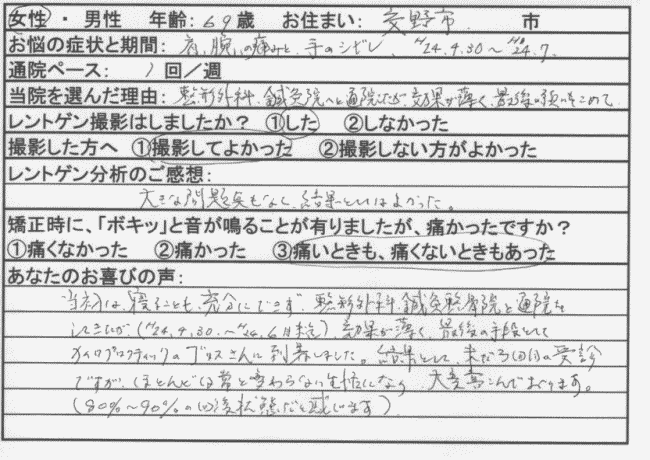 女性 ・ 男性 年齢：69歳 お住まい：交野市 市
お悩の症状と期間：肩、腕の痛みと、手のシビレ、H24.4.30～H24.7.
通院ペース：1回／週
当院を選んだ理由：整形外科、鍼灸院へと通院したが、効果が薄く、最後の頼みをこめて
レントゲン撮影はしましたか？ ①した ②しなかった
撮影した方へ ①撮影してよかった ②撮影しない方がよかった
レントゲン分析のご感想：
大きな問題点もなく、結果としてはよかった。
矯正時に、「ボキッ」と音が鳴ることが有りましたが、痛かったですか？
①痛くなかった ②痛かった ③痛いときも、痛くないときもあった
あなたのお喜びの声：
当初は、寝ることも、充分にできず、整形外科、鍼灸整骨院と通院を
してきたが（H24.4.30.～H24.6月末迄）効果が薄く、最後の手段として
カイロプラクティックの さんに到着しました。結果として、未だ5回の受診
ですが、ほとんど日常と変わらない生活になり、大変喜こんでおります。
（80%～90%の回復状態だと感じます）